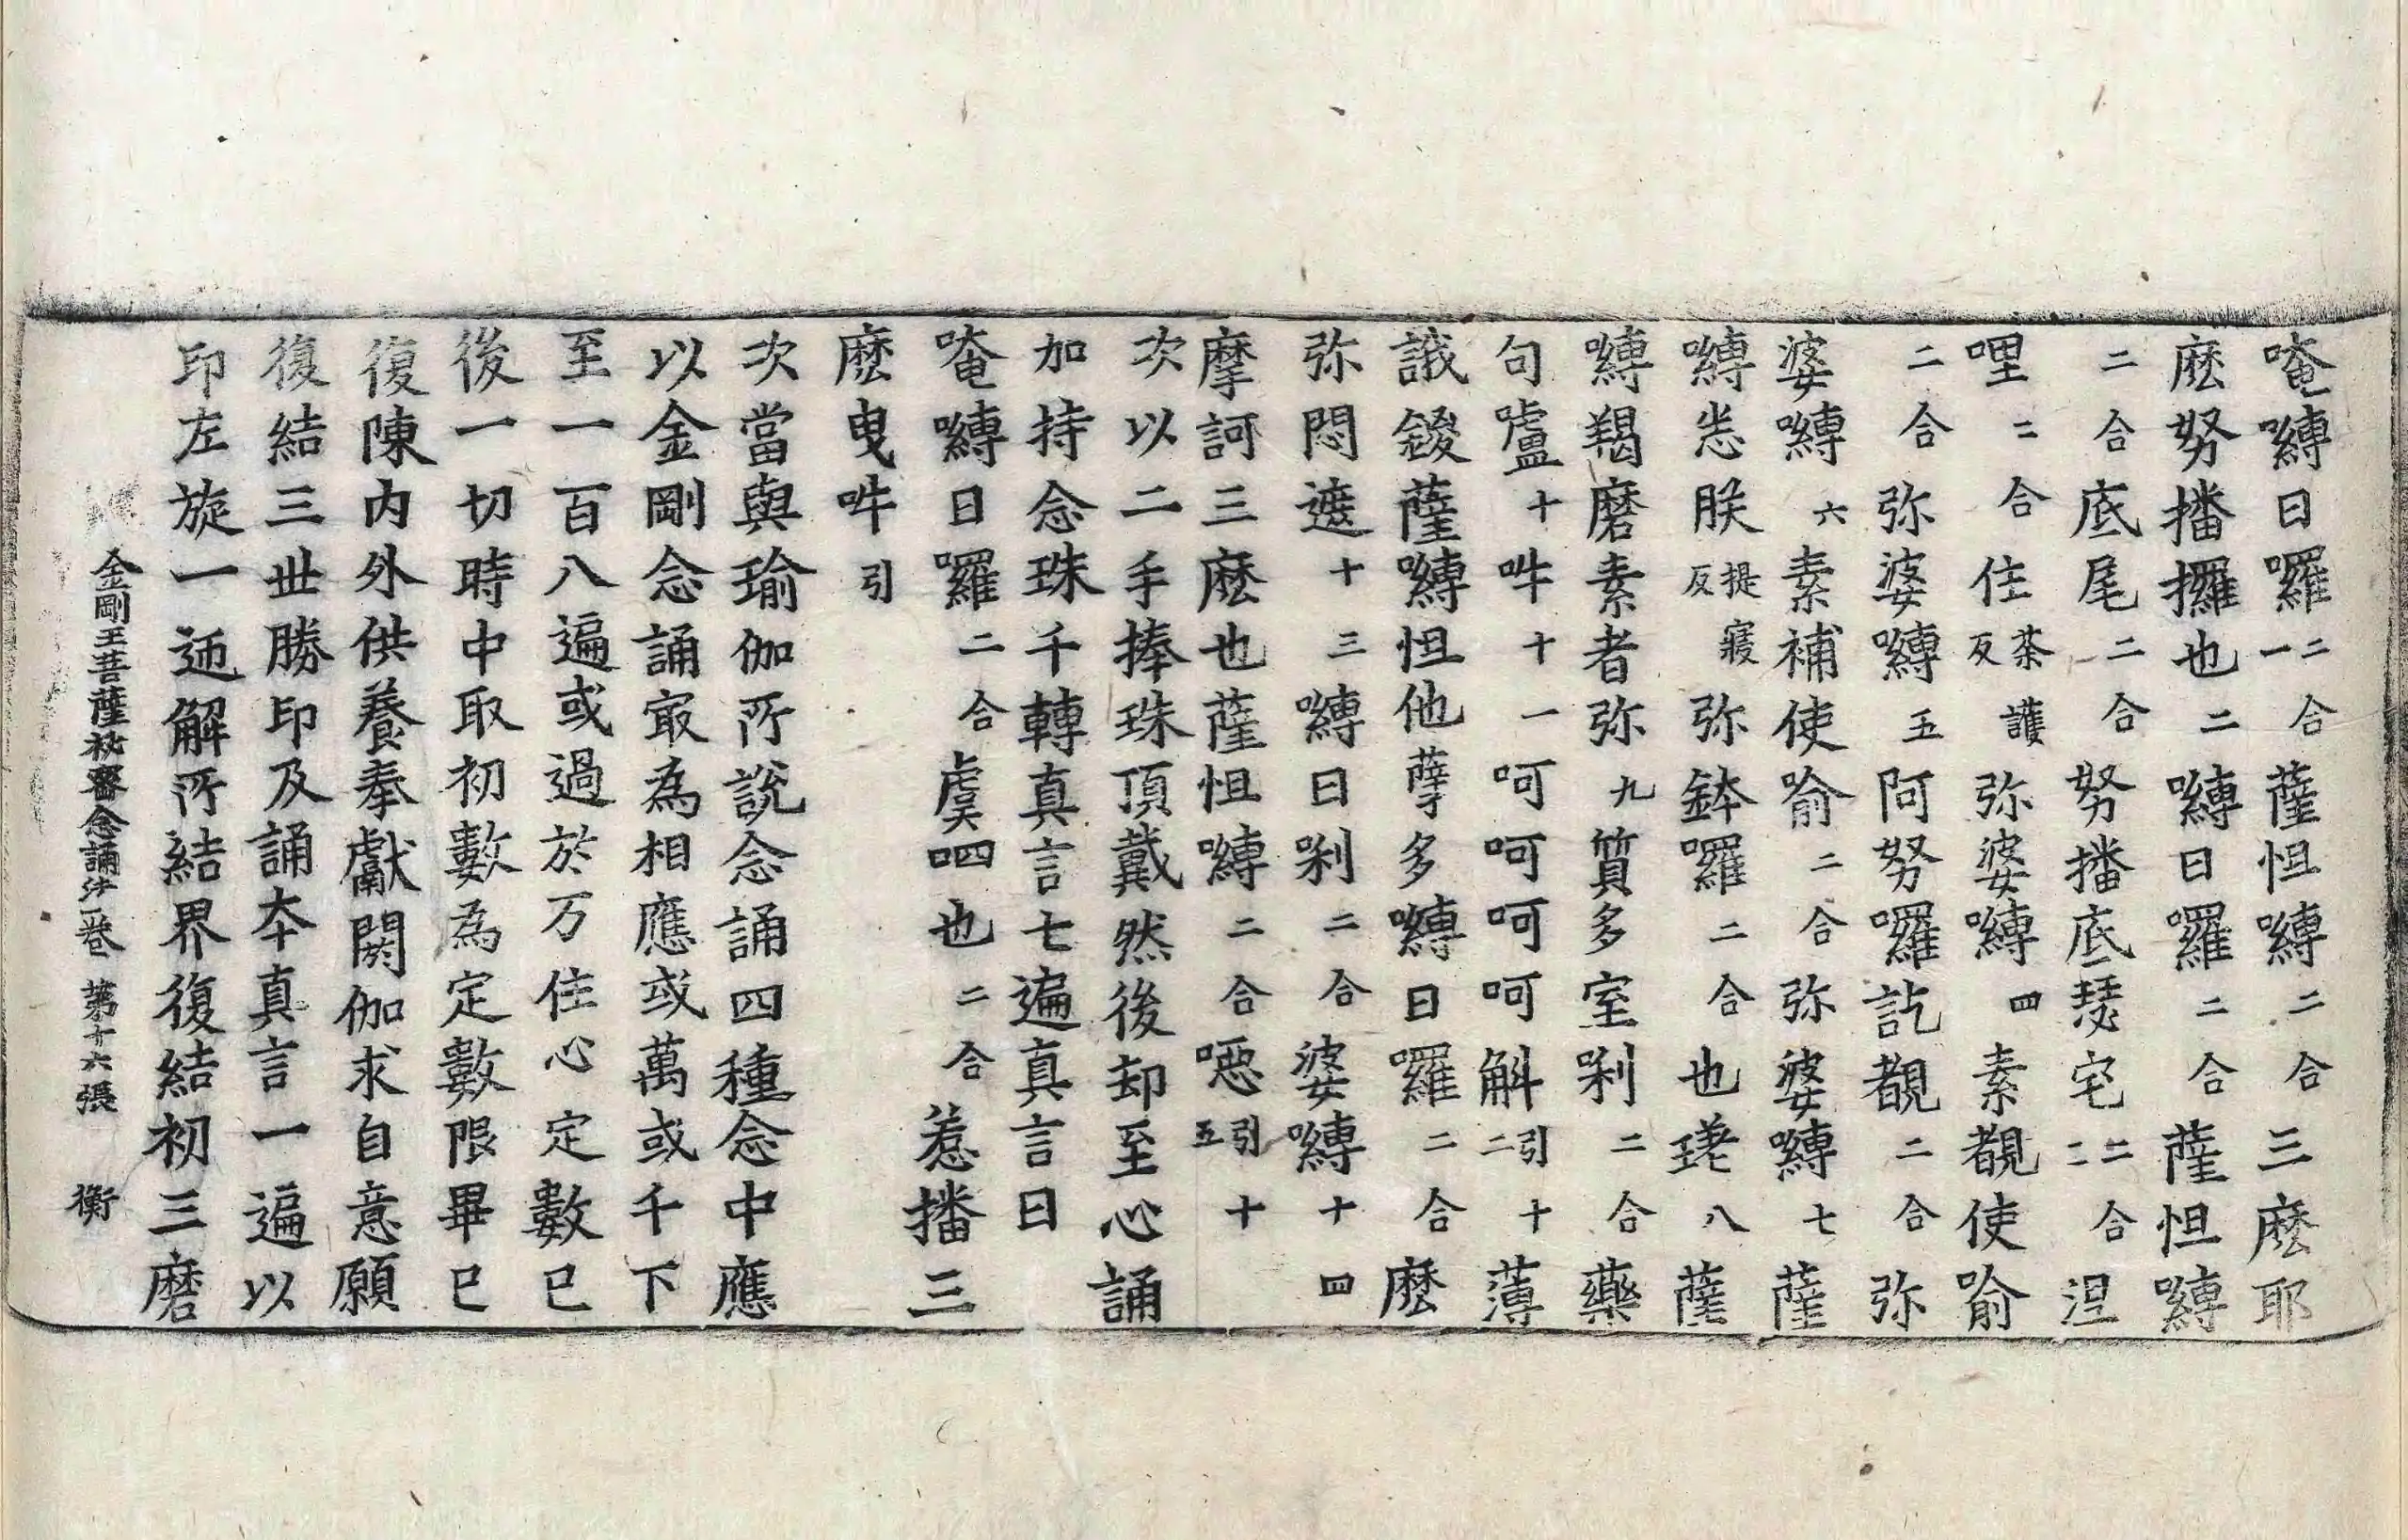 唵嚩日囉二合一薩怛嚩二合三麽耶
麽努播攞也二嚩日囉二合薩怛嚩
二合底尾二合努播底瑟宅二合三涅
哩二合住茶護反弥婆嚩四素覩使喻
二合弥婆嚩五阿努囉訖覩二合弥
婆嚩六素補使喻二合弥婆嚩七薩
嚩悉朕提寢反弥鉢囉二合也瑳八薩
嚩羯磨素者弥九質多室唎二合藥
句嚧十吽十一呵呵呵呵斛引十二薄
誐鍐薩嚩怛他孽多嚩日囉二合麽
弥悶遮十三嚩日唎二合婆嚩十四
摩訶三麽也薩怛嚩二合噁引十五
次以二手捧珠頂戴然後却至心誦
加持念珠千轉真言七遍真言曰
唵嚩日囉二合虞呬也二合惹播三
麽曳吽引
次當與瑜伽所說念誦四種念中應
以金剛念誦㝡為相應或萬或千下
至一百八遍或過於万住心定數已
後一切時中取初數為定數限畢已
復陳内外供養奉獻閼伽求自意願
復結三世勝印及誦本真言一遍以
印左旋一迊解所結界復結初三磨
金剛王菩薩祕密念誦法一卷 第十六張 衡